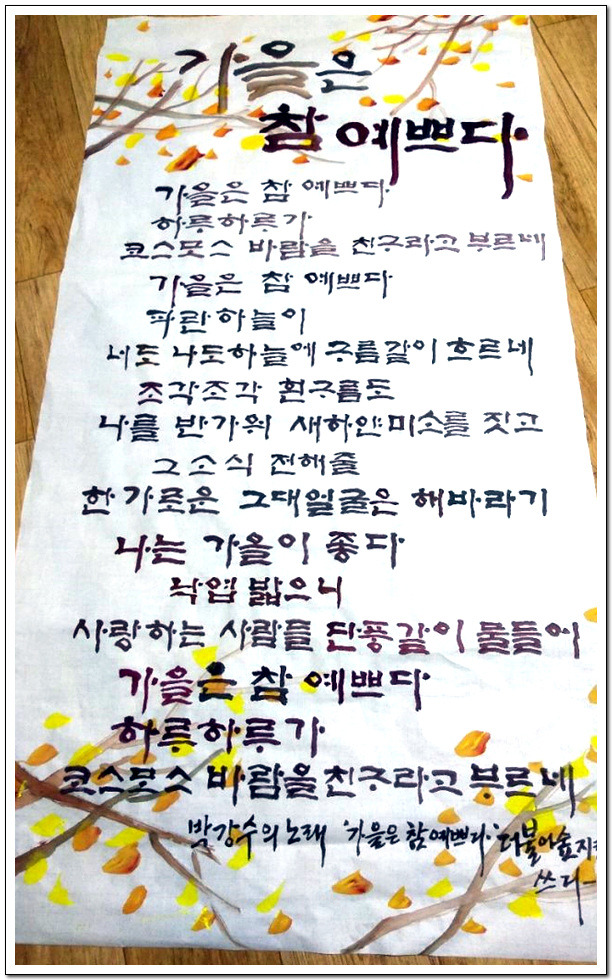 가을은
참 예쁘다
가을은 참 예쁘다
하루하루가
코스모스 바람을 친구라고 부르네
가을은 참 예쁘다
파란하늘이
너도 나도하늘에 구름같이 흐르네
조각조각 흰구름도
나를 반가워 새하얀미소를 짓고
그 소식 전해줄
한가로운 그대얼굴은 해바라기
나는 가을이 좋다
낙엽 밟으니
사랑하는 사람들 단풍같이 물들어
가을은 참 예쁘다
하루하루가
코스모스 바람을 친구라고 부르네
박강수의 노래 '가을은 참 예쁘다' 더불어숲
쓰다